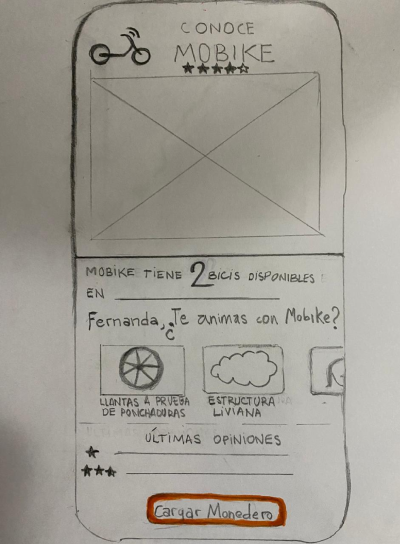 CONOCE
MOBIKE
MOBIKE TIENE 2 BICIS DISPONIBLES
EN
Fernanda, ¿Te animas con Mobike?
LLANTAS A PRUEBA
DE PONCHADURAS
ESTRUCTURA
LIVIANA
ÚLTIMAS OPINIONES
Cargar Monedero